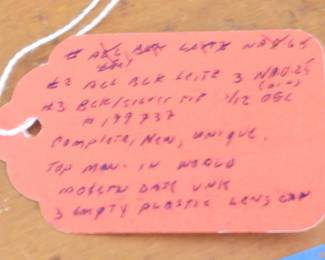 # BLK LEITZ
#2 ALL BLK LEITZ 3
#3 BLK/SILVER TIP 1/12 OEL
# 199737
COMPLETE, NEW, UNIQUE.
TOP MAN. IN WORLD
MODERN DATE UNK
3 EMPTY PLASTIC LENS CAN